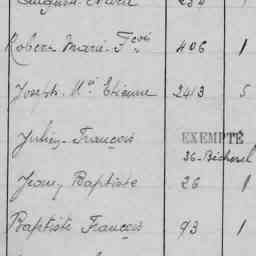 Robert Marie-Fçois 406 1
Joseph Mie Etienne 243 5
Julien-François EXEMPTÉ
36-Bécherel
Jean-Baptiste 26 1
Baptiste François 93 1